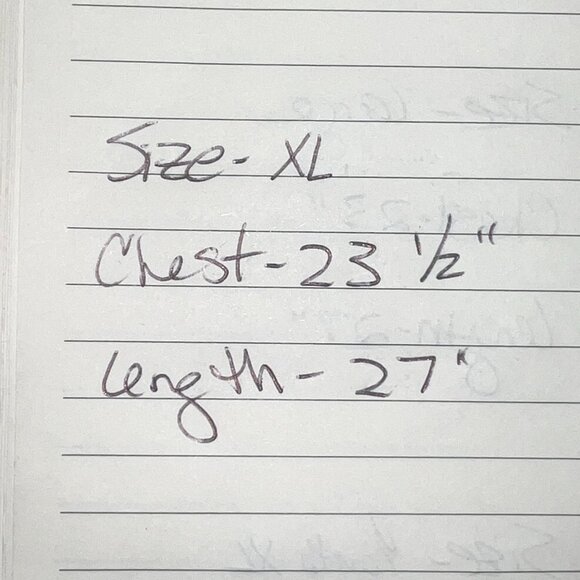 Size- XL
Chest-23 1/2"
Length-27"